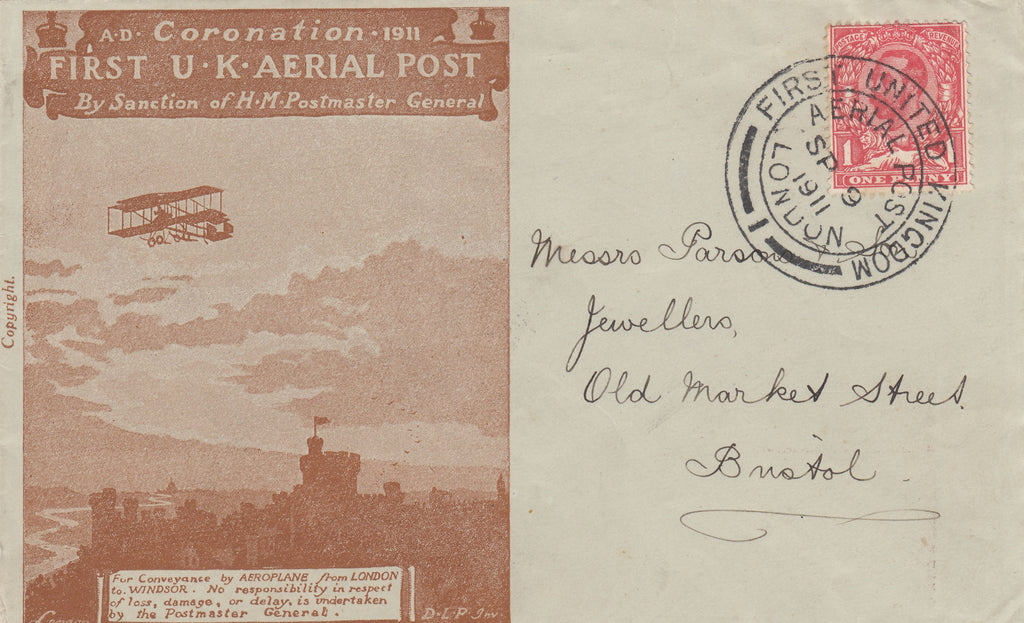 A·D· Coronation · 1911
FIRST U·K·AERIAL POST
By Sanction of H·M·Postmaster General
Copyright.
For Conveyance by AEROPLANE from LONDON
to WINDSOR. No responsibility in respect
of loss, damage, or delay, is undertaken
by the Postmaster General.
D·L·P Inv.
POSTAGE REVENUE
1 1
ONE PENNY
FIRST UNITED KINGDOM
AERIAL POST
SP 9
1911
LONDON
1
Messrs Parsons
Jewellers,
Old Market Street.
Bristol